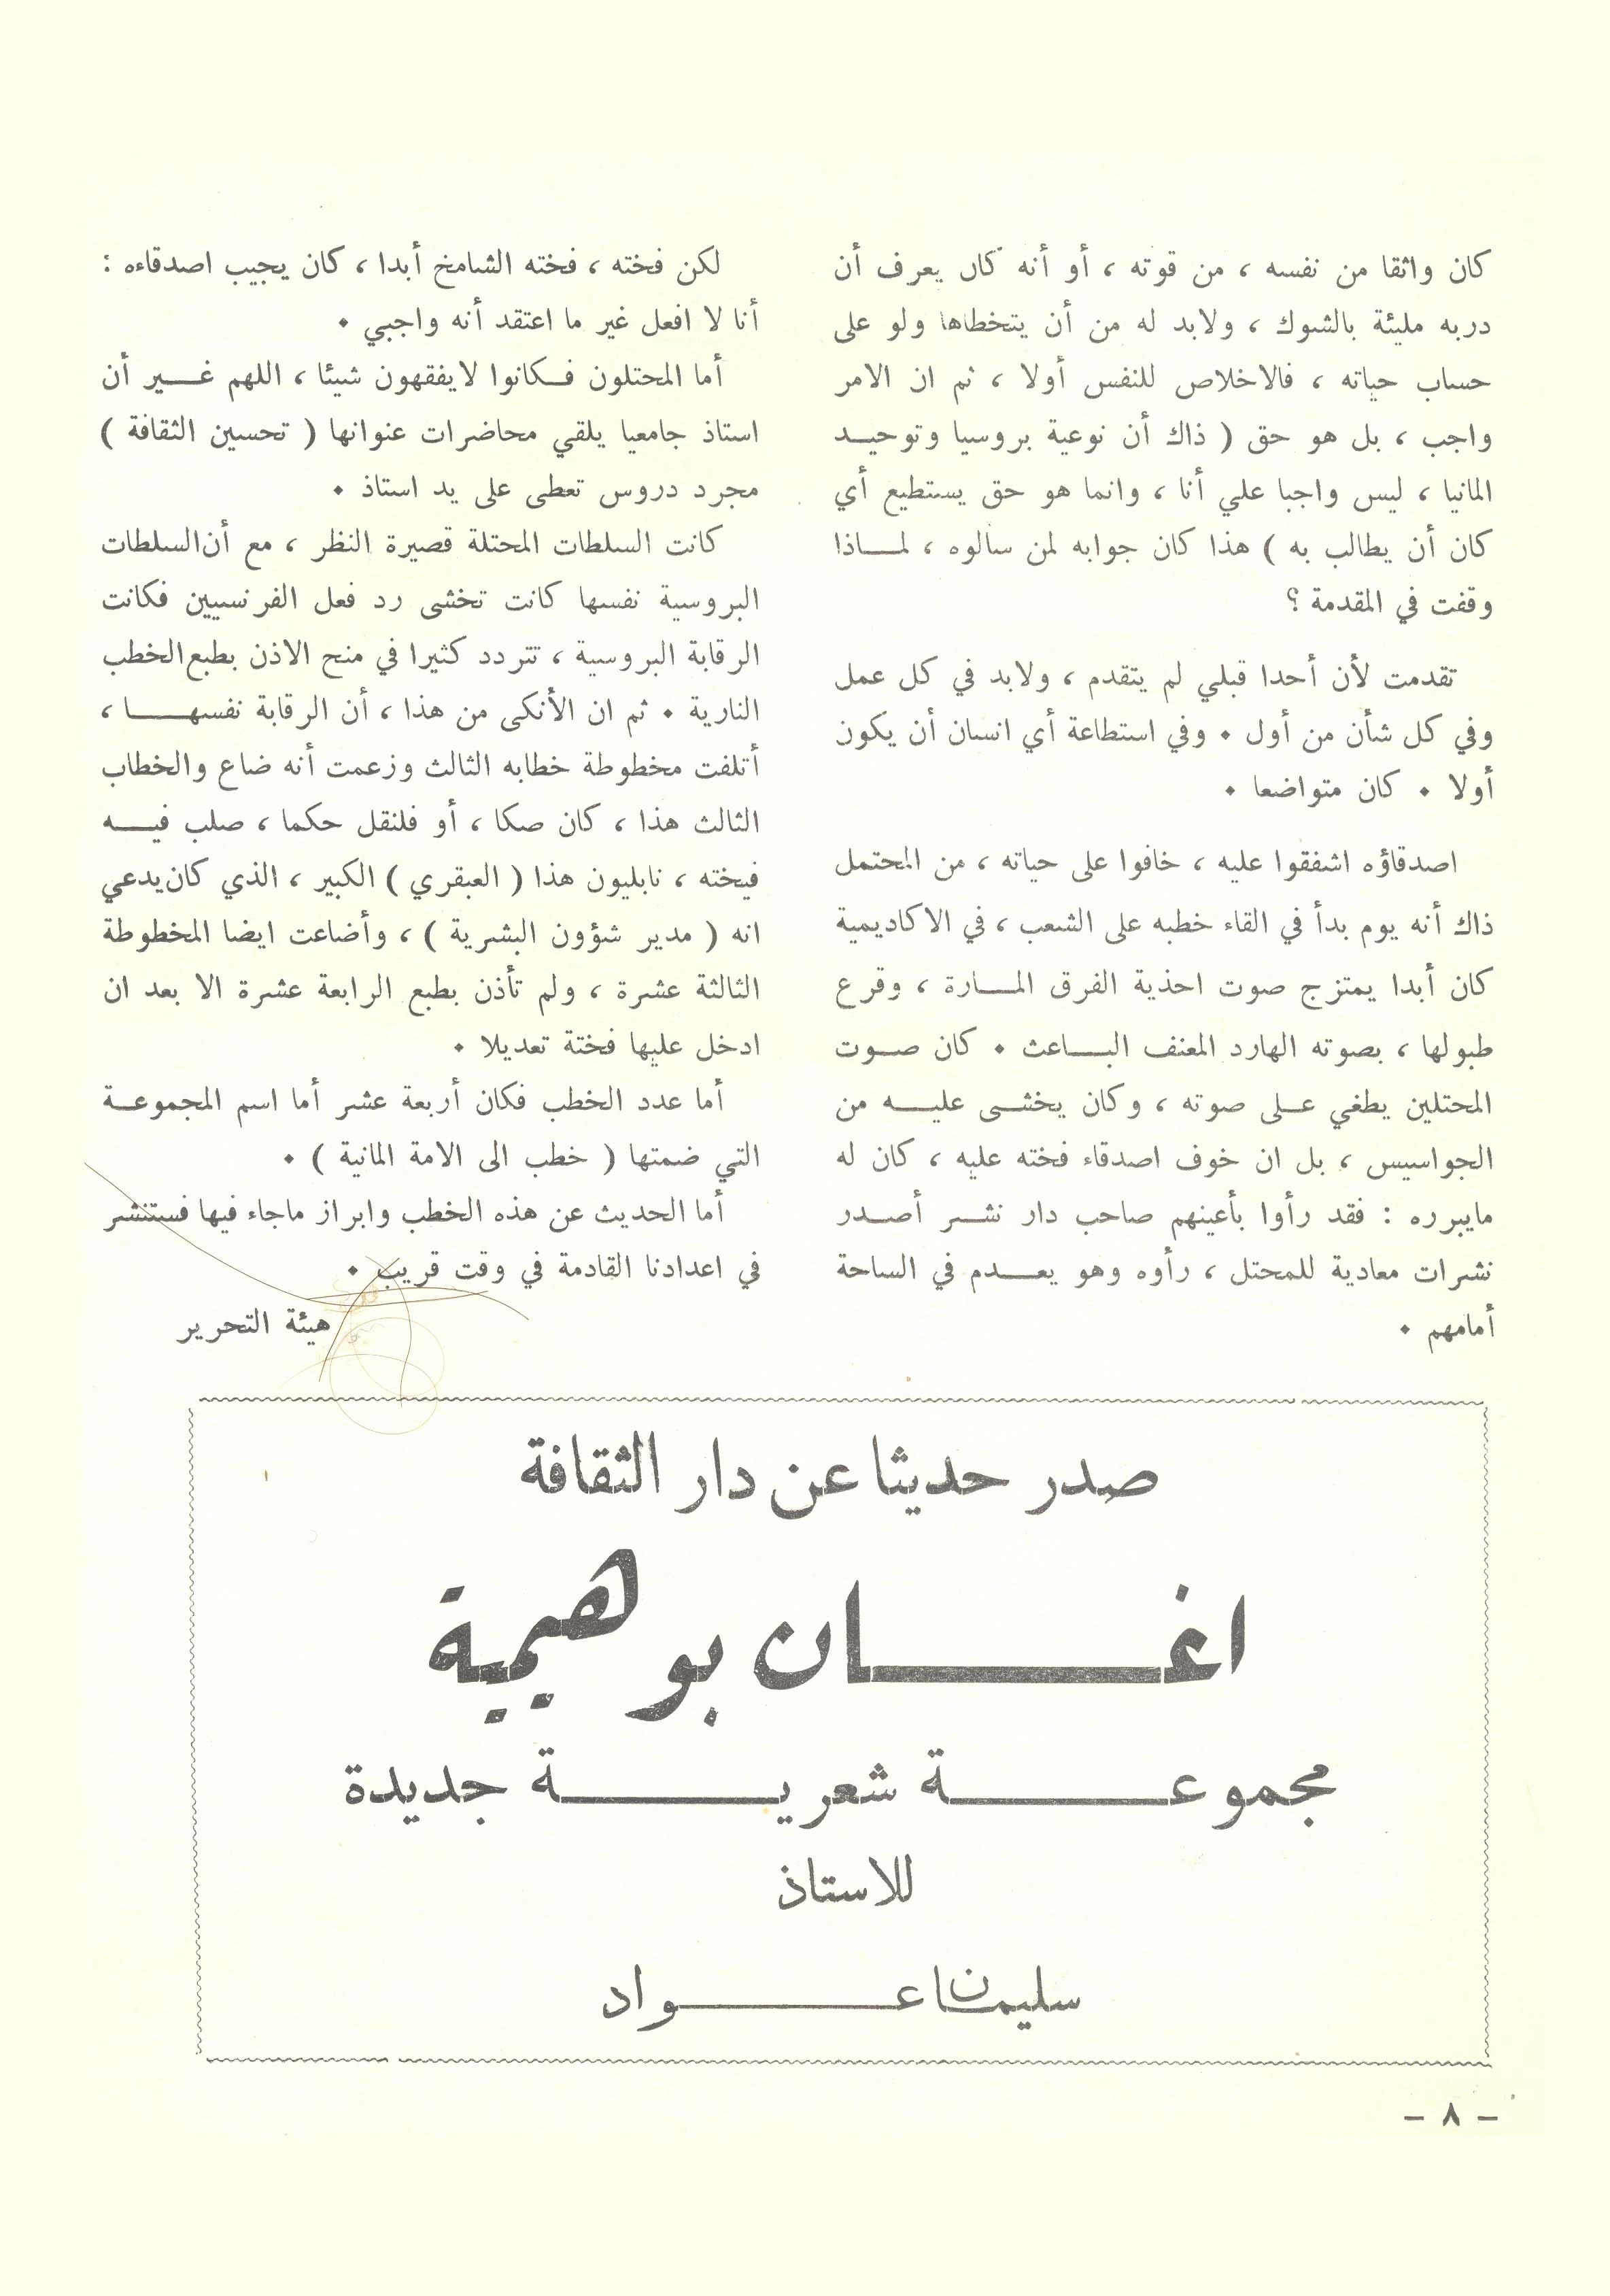 كان واثقا من نفسه ، من قوته ، أو أنه كان يعرف أن
دربه مليئة بالشوك ، ولابد له من أن يتخطاها ولو على
حساب حياته ، فالاخلاص للنفس أولا ، ثم ان الامر
واجب ، بل هو حق ( ذاك أن نوعية بروسيا وتوحيد
المانيا ، ليس واجبا علي أنا ، وانما هو حق يستطيع أي
كان أن يطالب به ) هذا كان جوابه لمن سألوه ، لماذا
وقفت في المقدمة ؟
تقدمت لأن أحدا قبلي لم يتقدم ، ولابد في كل عمل
وفي كل شأن من أول • وفي استطاعة أي انسان أن يكون
أولا • كان متواضعا •
اصدقاؤه اشفقوا عليه ، خافوا على حياته ، من المحتمل
ذاك أنه يوم بدأ في القاء خطبه على الشعب ، في الاكاديمية
كان أبدا يمتزج صوت احذية الفرق المارة ، وقرع
طبولها ، بصوته الهارد المعنف الباعث • كان صوت
المحتلين يطغي على صوته ، وكان يخشى عليه من
الجواسيس ، بل ان خوف اصدقاء فخته عليه ، كان له
مايبرره : فقد رأوا بأعينهم صاحب دار نشر أصدر
نشرات معادية للمحتل ، رأوه وهو يعدم في الساحة
أمامهم •
لكن فخته ، فخته الشامخ أبدا ، كان يجيب اصدقاءه :
أنا لا افعل غير ما اعتقد أنه واجبي •
أما المحتلون فكانوا لايفقهون شيئا ، اللهم غير أن
استاذ جامعيا يلقي محاضرات عنوانها ( تحسين الثقافة )
مجرد دروس تعطى على يد استاذ •
كانت السلطات المحتلة قصيرة النظر ، مع أن السلطات
البروسية نفسها كانت تخشى رد فعل الفرنسيين فكانت
الرقابة البروسية ، تتردد كثيرا في منح الاذن بطبع الخطب
النارية • ثم ان الأنكى من هذا ، أن الرقابة نفسها ،
أتلفت مخطوطة خطابه الثالث وزعمت أنه ضاع والخطاب
الثالث هذا ، كان صكا ، أو فلنقل حكما ، صلب فيه
فيخته ، نابليون هذا ( العبقري ) الكبير ، الذي كان يدعي
انه ( مدير شؤون البشرية ) ، وأضاعت ايضا المخطوطة
الثالثة عشرة ، ولم تأذن بطبع الرابعة عشرة الا بعد ان
ادخل عليها فختة تعديلا •
أما عدد الخطب فكان أربعة عشر أما اسم المجموعة
التي ضمتها ( خطب الى الامة المانية ) •
أما الحديث عن هذه الخطب وابراز ماجاء فيها فستنشر
في اعدادنا القادمة في وقت قريب •
هيئة التحرير
صدر حديثا عن دار الثقافة
اغان بوهيمية
مجموعة شعرية جديدة
للاستاذ
سليمان عواد
- ٨ -